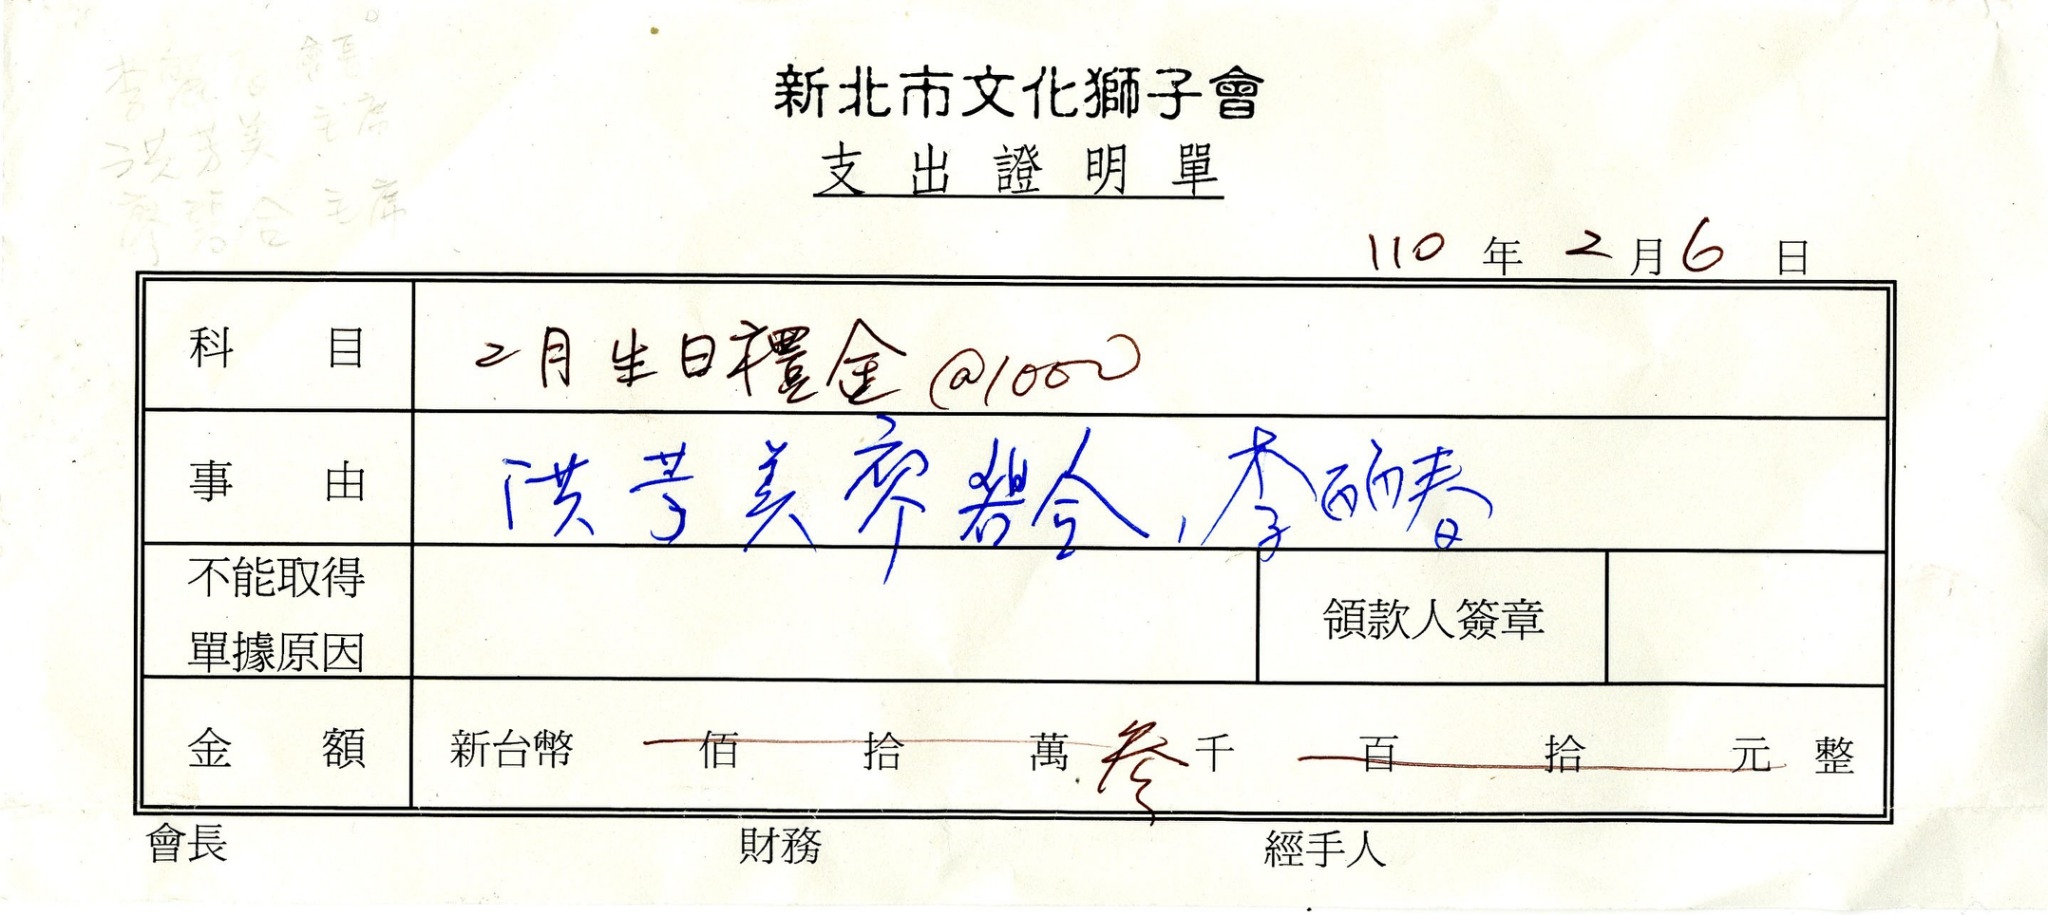 新北市文化獅子會
支出證明單
110 年 2 月 6 日
科目 2月生日禮金 @1000
事由 洪芳美 廖碧令, 李麗春
不能取得
單據原因
領款人簽章
金額 新台幣 佰 拾 萬 叁 千 百 拾 元 整
會長 財務 經手人